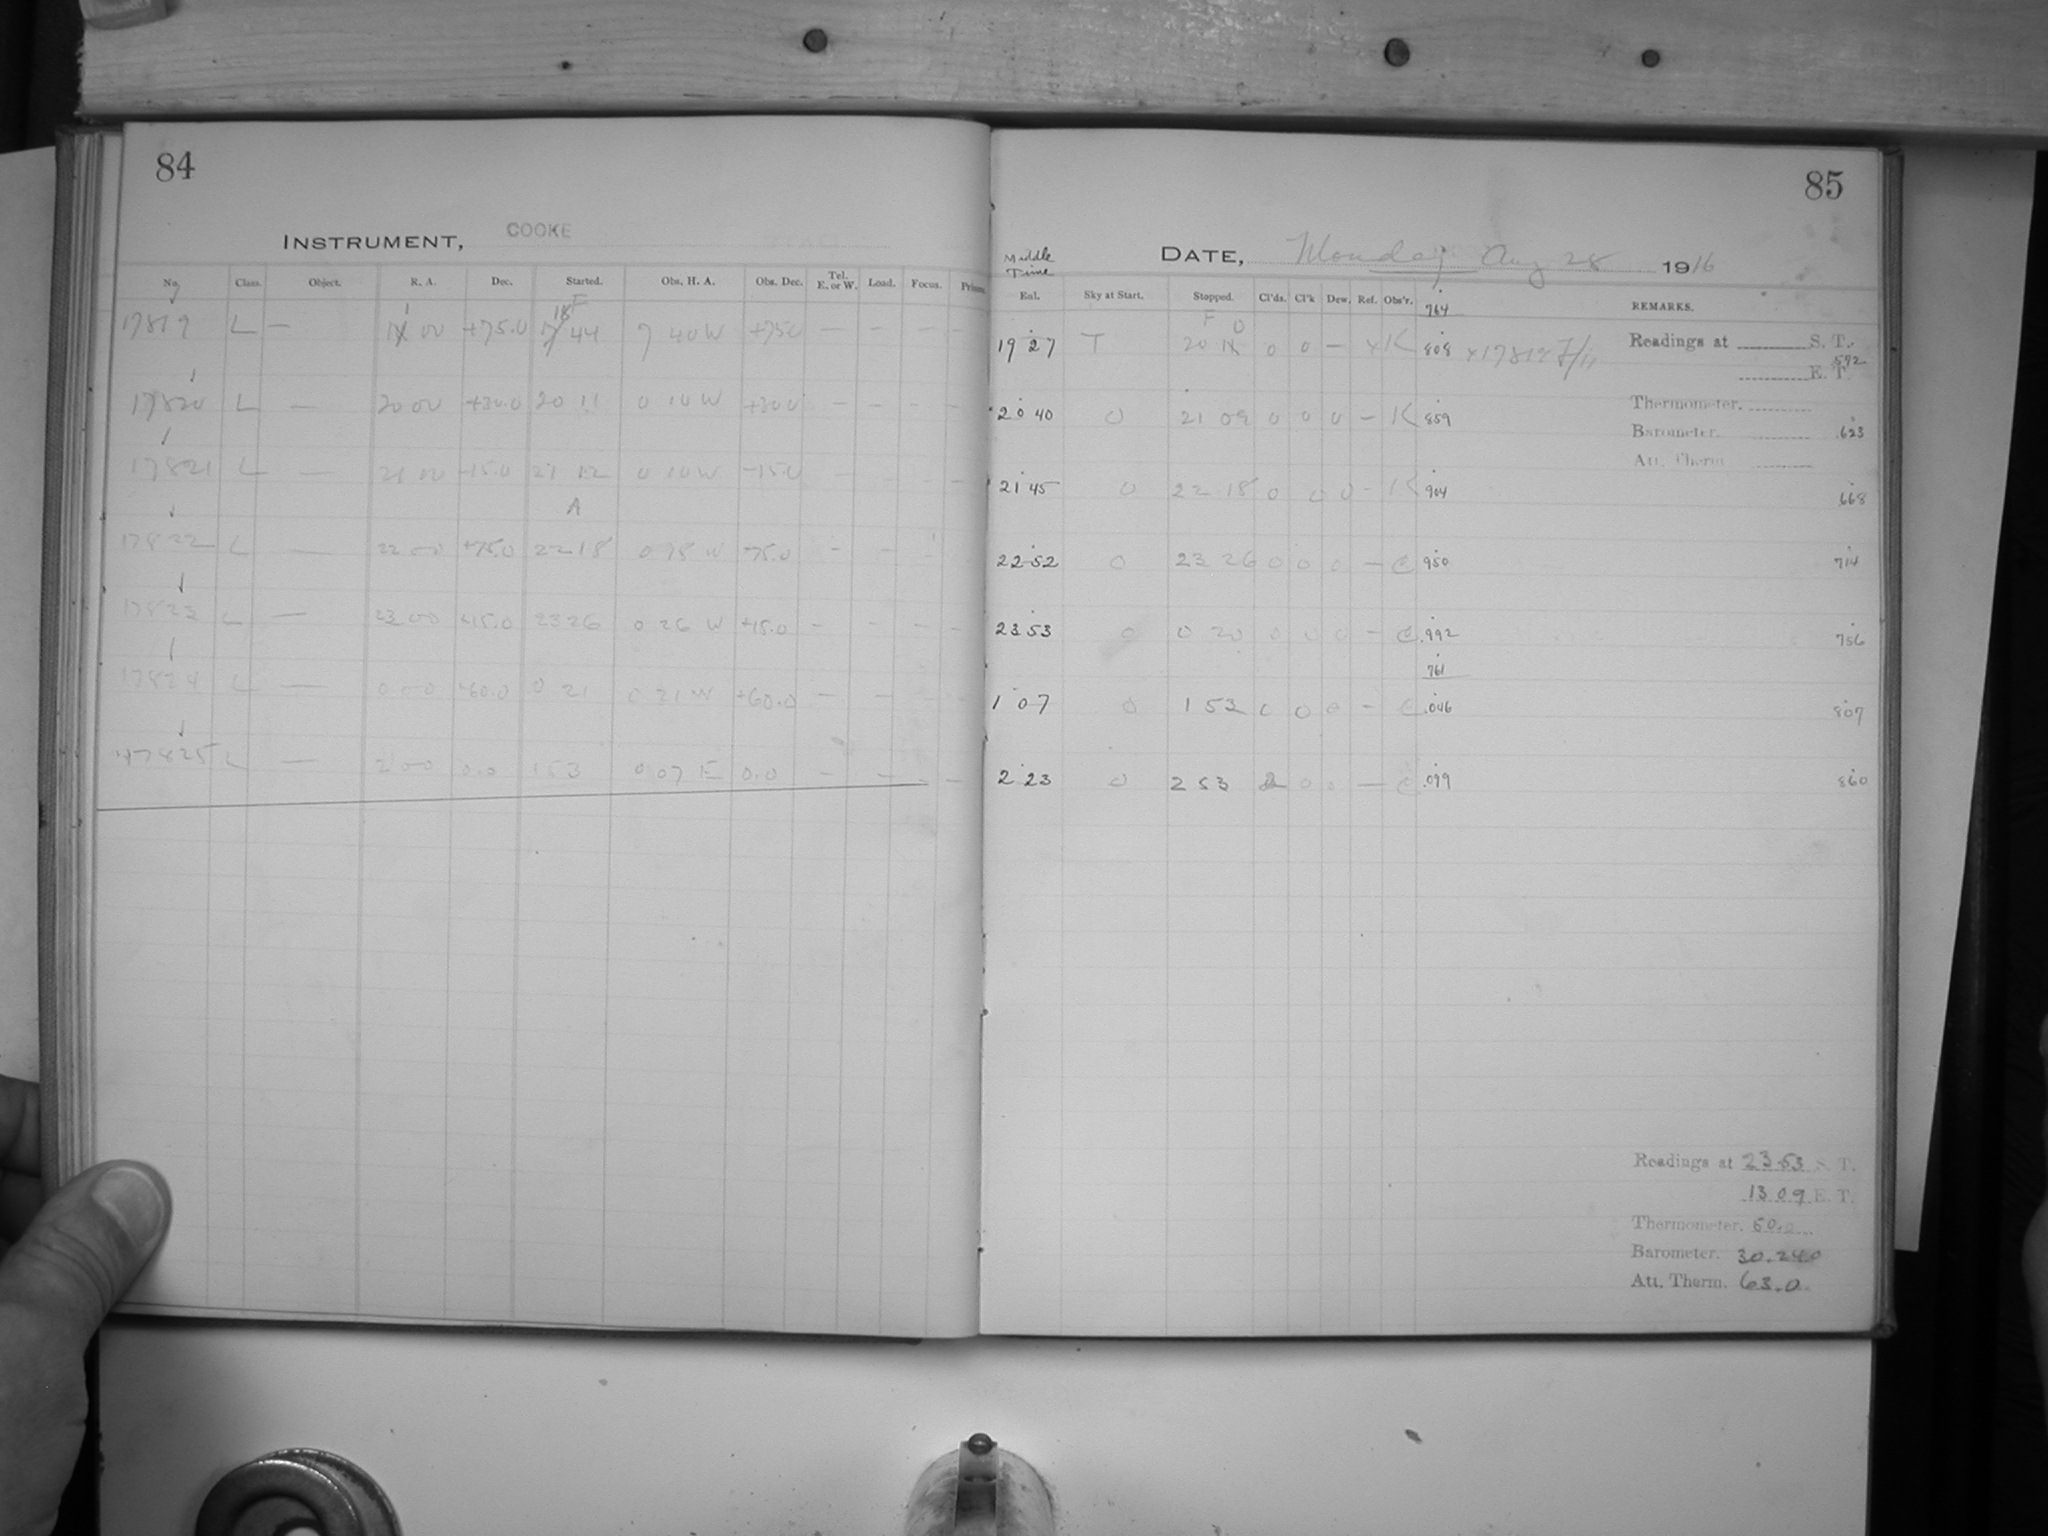 84
INSTRUMENT, COOKE
No. Class. Object. R. A. Dec. Started. Obs. H. A. Obs. Dec. Tel. E. or W. Load. Focus.
17819 L — 00 +75.0 44 7 40 W +75.0 — — —
17820 L — 20 00 +30.0 20 11 0 10 W +30.0 — — — —
17821 L — 21 00 -15.0 21 12 0 10 W -15.0 —
A
17822 L — 22 00 +75.0 22 18 0 18 W +75.0 — —
17823 L — 23 00 +45.0 23 26 0 26 W +45.0 — — — —
17824 L — 0 00 +60.0 0 21 0 21 W +60.0 — — — —
17825 L — 2 00 0.0 1 53 0 07 E 0.0 — — — —
85
DATE, Monday Aug 28 1916
Middle Time
Enl. Sky at Start. Stopped. Cl'ds. Cl'k Dew. Ref. Obs'r. 764 REMARKS.
19 27 T 20 0 0 — K 808 x17819
20 40 0 21 09 0 0 0 — K 859
21 45 0 22 18 0 0 0 - K 904
22 52 0 23 26 0 0 0 — C 950
23 53 0 0 20 0 0 0 — C .992
761
1 07 0 1 53 0 0 0 — C .046
2 23 0 2 53 2 0 0 — C .099
Readings at S. T.
592
E. T.
Thermometer.
Barometer. .623
Att. Therm
668
714
756
807
860
Readings at 23 53 S. T.
13 09 E. T.
Thermometer. 50.0
Barometer. 30.240
Att. Therm. 63.0